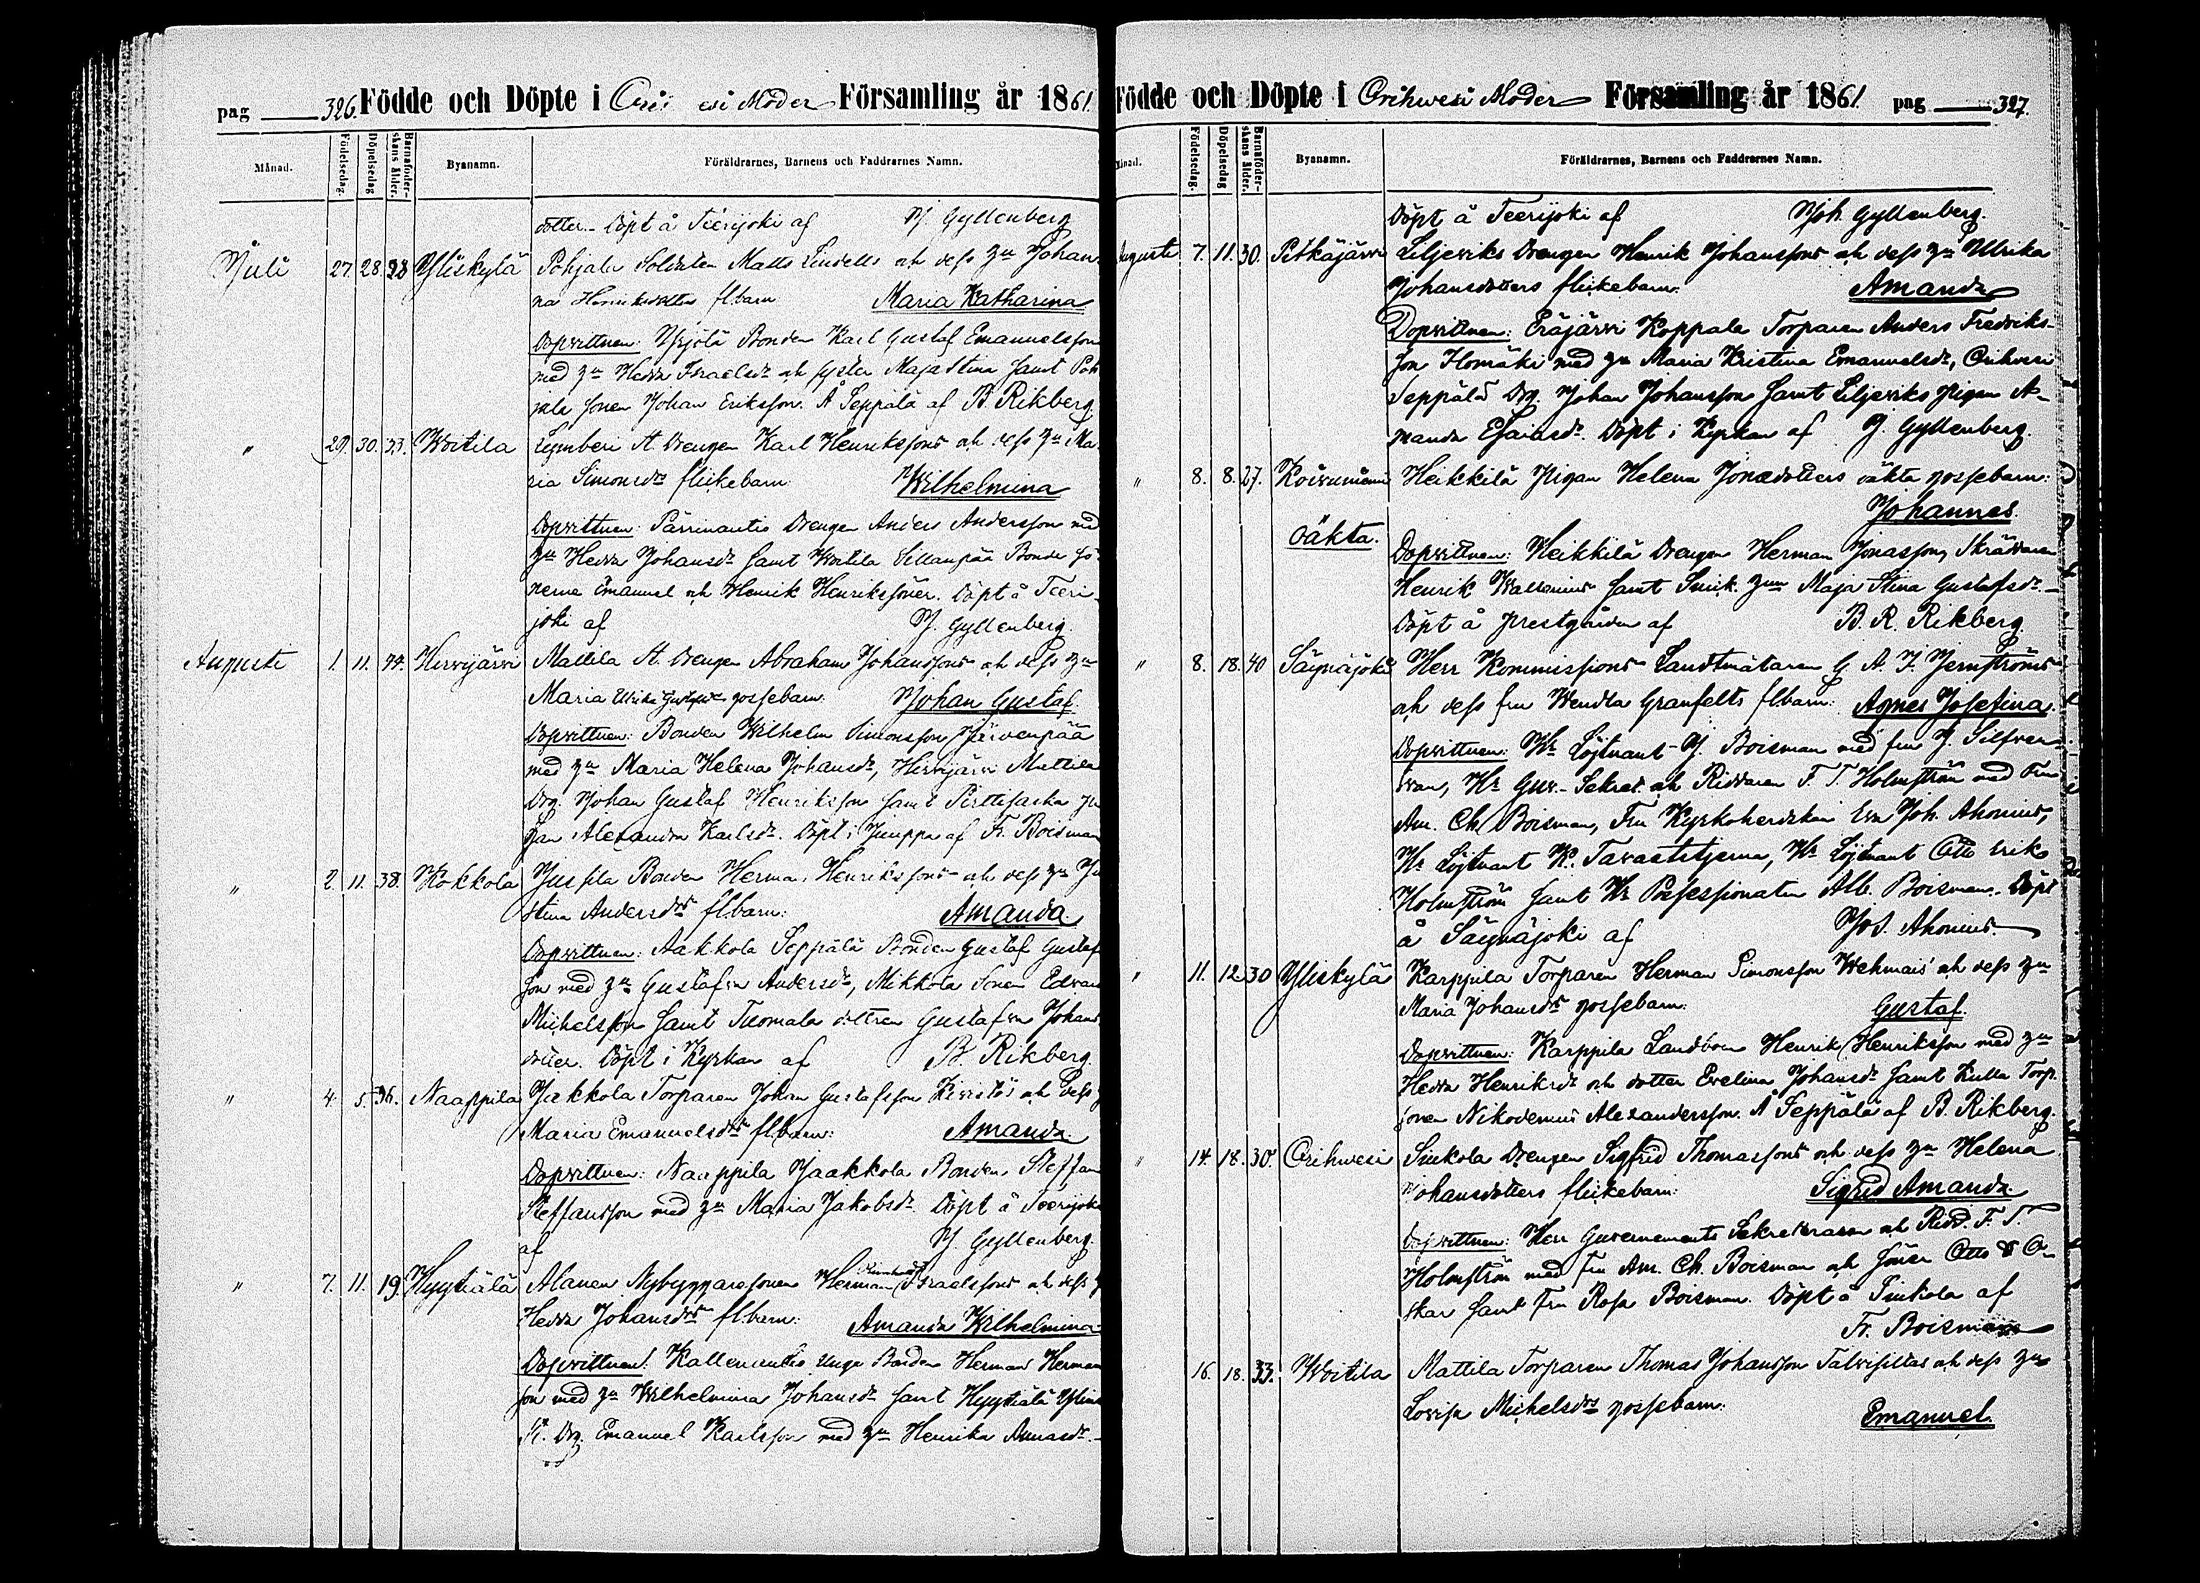 pag 326. Födde och Döpte i Ori esi Moder Församling år 1861.
Månad. Födelsedag. Döpelsedag Barnaföderskans ålder. Byanamn. Föräldrarnes, Barnens och Faddrarnes Namn.
dotter. Döpt å Teerijoki af J. Gyllenberg
Juli 27. 28. 38 Yliskylä Pohjala Soldaten Matts Lindells och dess hu Johan
na Henriksdotters flbarn Maria Katharina
Dopvittnen: Yrjölä Bonden Karl Gustaf Emanuelsson
med hu Hedda Israelsdr och syster Maja Stina samt Poh
jala sonen Johan Eriksson. Å Seppälä af B. Rikberg.
" 29. 30. 33. Woitila A. Drengen Karl Henrikssons och dess hu Ma
ria Simonsdrs flickebarn Wilhelmina
Dopvittnen: Drengen Anders Andersson med
hu Hedda Johansdr samt Woitila Sillanpää Bonde sö
nerne Emanuel och Henrik Henrikssöner. Döpt å Teeri-
joki af J. Gyllenberg.
Augusti 1. 11. 44. Hirvijärvi Mattila A. Drengen Abraham Johanssons och dess hu
Maria Ulrika gossebarn. Johan Gustaf.
Dopvittnen: Bonden Wilhelm Simonsson Järvenpää
med hu Maria Helena Johansdr, Hirvijärvi Mattila
Drg. Johan Gustaf Henriksson samt
Alexandra Karlsdr. Döpt i af Fr. Boisman
" 2. 11. 38. Kokkola Jussila Bonden Herman Henrikssons och dess hu Ju
stina Andersdrs flbarn: Amanda.
Dopvittnen: Aakkola Seppälä Bonden Gustaf Gustaf
son med hu Gustafva Andersdr, Mikkola Sonen Edvard
Michelsson samt Tuomala dottren Gustafva Johans
dotter. Döpt i Kyrkan af B. Rikberg
" 4. 5. 36. Naappila Jakkola Torparen Johan Gustafsson Kivistös och dess
Maria Emanuelsdrs flbarn: Amanda.
Dopvittnen: Naappila Jaakkola Bonden Steffan
Steffansson med hu Maria Jakobsdr. Döpt å Teerijoki
af J. Gyllenberg.
" 7. 11. 19. Hyytiälä Alanen Nybyggaresonen Herman Israelssons och dess
Hedda Johansdrs flbarn: Amanda Wilhelmina
Dopvittnen: Unge Bonden Herman Herman
son med hu Wilhelmina Johansdr samt Hyytiälä
Drg. Emanuel Karlsson med hu Henrika
Födde och Döpte i Orihwesi Moder Församling år 1861. pag 327.
Månad. Födelsedag. Döpelsedag Barnaföderskans ålder. Byanamn. Föräldrarnes, Barnens och Faddrarnes Namn.
Döpt å Teerijoki af Joh. Gyllenberg.
Augusti 7. 11. 30. Pitkäjärvi Liljeviks Drengen Henrik Johanssons och dess hu Ulrika
Johansdotters flickebarn: Amanda
Dopvittnen: Eräjärvi Koppala Torparen Anders Fredriks-
son Homäki med hu Maria Kristina Emanuelsdr, Orihwesi
Seppälä Drg. Johan Johansson samt Liljeviks Pigan A-
manda Esaiasdr. Döpt i Kyrkan af J. Gyllenberg.
" 8. 8. 27. Koivuniemi Heikkilä Pigan Helena Jonædotters oäkta gossebarn:
Johannes.
oäkta. Dopvittnen: Heikkilä Drengen Herman Jonasson, Skräddaren
Henrik Wallenius samt Snick. hu Maja Stina Gustafsdr.
Döpt å Prestgården af B. R. Rikberg.
" 8. 18. 40 Säynäjoki Herr Kommissions Landtmätaren G. A. F. Jernströms
och dess fru Wendla Granfelts flbarn: Agnes Josefina.
Dopvittnen: Hr Löjtnant J. Boisman med fru J. Silfver-
svan, Hr Guv.-Sekret. och Riddaren F. T. Holmström med Fru
Am. Ch. Boisman, Fru Kyrkoherdskan Eva Joh. Ahonius,
Hr Löjtnant K. Tavaststjerna, Hr Löjtnant Otto Eriks
Holmström samt Hr Possessionaten Alb. Boisman. Döpt
å Säynäjoki af Jos. Ahonius.
" 11. 12 30 Yliskylä Karppila Torparen Herman Simonsson Wehmais och dess hu
Maria Johansdrs gossebarn. Gustaf.
Dopvittnen: Karppila Landbon Henrik Henriksson med hu
Hedda Henriksdr och dotter Evelina Johansdr samt Kulla Torp.
sonen Nikodemus Alexandersson. Å Seppälä af B. Rikberg.
" 14. 18. 30. Orihwesi Sinkola Drengen Sigfrid Thomassons och dess hu Helena
Johansdotters flickebarn: Sigrid Amanda
Dopvittnen: Herr Guvernements Sekreteraren och Ridd. F. T.
Holmström med fru Am. Ch. Boisman och söner Otto & O-
skar samt Fru Rosa Boisman. Döpt å Sinkola af
Fr. Boisman
16. 18. 33. Woitila Mattila Torparen Thomas Johansson Talvisillas och dess hu
Lovisa Michelsdrs gossebarn: Emanuel.